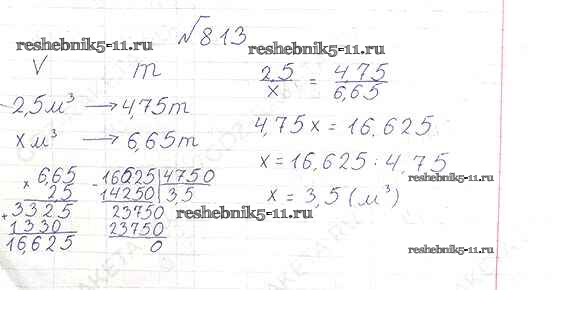 №813
reshebnik5-11.ru
V m
2,5 м³ → 4,75 т
х м³ → 6,65 т
× 6,65
2,5
+ 3325
1330
16,625
- 16625 | 4750
14250 | 3,5
23750
23750
0
reshebnik5-11.ru
reshebnik5-11.ru
2,5 / х = 4,75 / 6,65
4,75 х = 16,625
х = 16,625 : 4,75
х = 3,5 (м³)
reshebnik5-11.ru
reshebnik5-11.ru